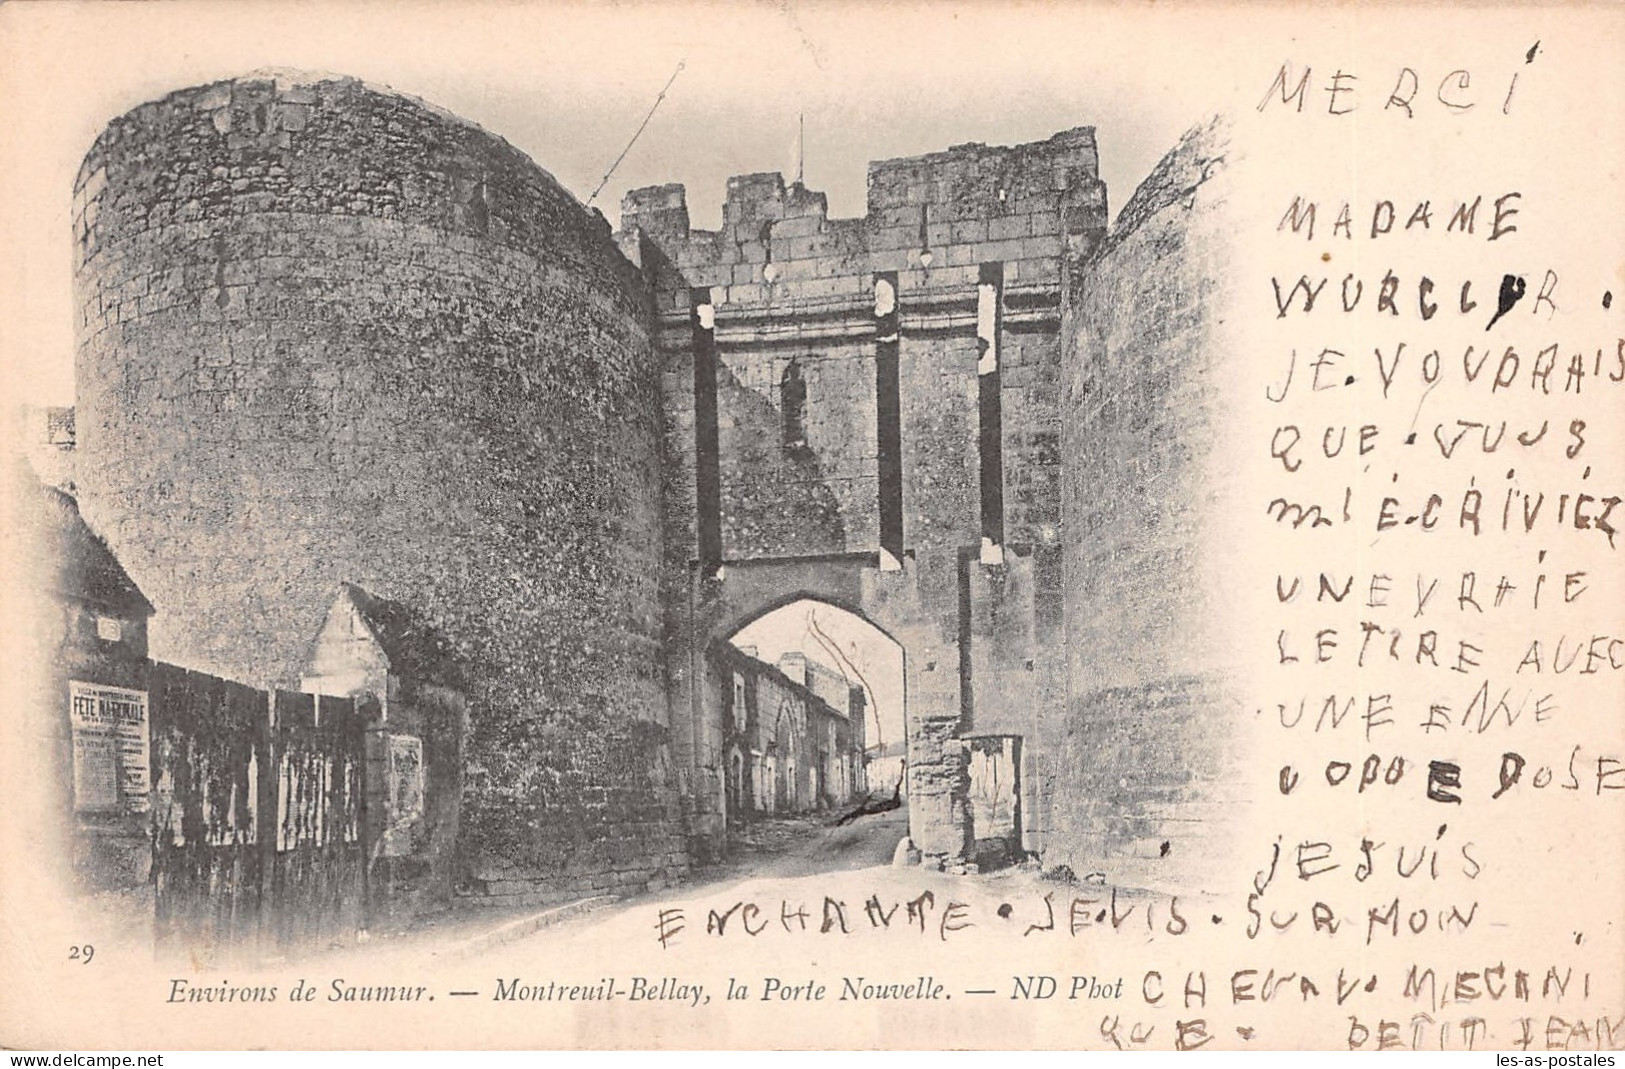 MERCI
MADAME
JE. VOUDRAIS
QUE. VUUS
M'ÉCRIVIEZ
UNE VRAIE
LETTRE AVEC
UNE ENVE
DOSE
JE SUIS
ENCHANTE. JE. VIS. SUR MON
CHEVAL. MECANI
QUE. PETIT JEAN
VILLE DE MONTREUIL-BELLAY
FÊTE NATIONALE
29
Environs de Saumur. — Montreuil-Bellay, la Porte Nouvelle. — ND Phot
les-as-postales